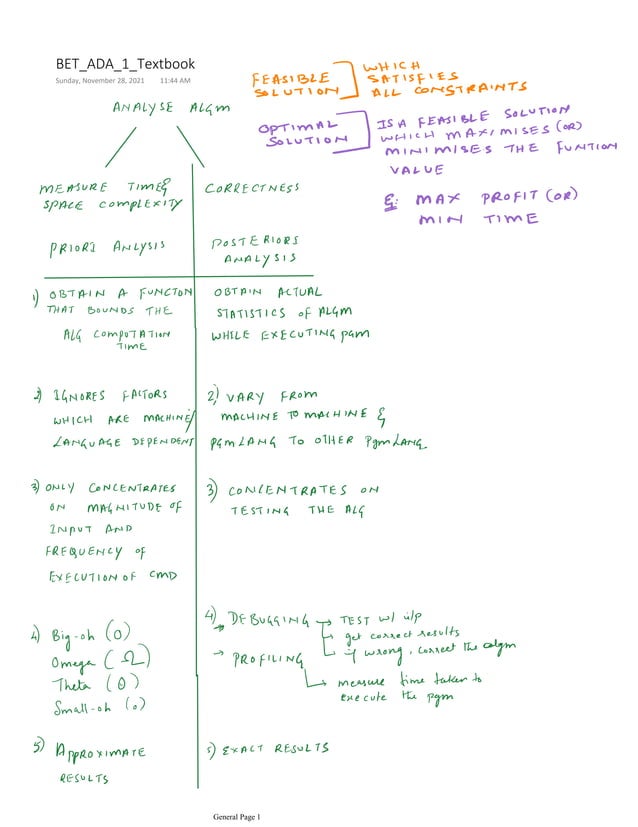 BET_ADA_1_Textbook
Sunday, November 28, 2021 11:44 AM
FEASIBLE
SOLUTION
WHICH
SATISFIES
ALL CONSTRAINTS
OPTIMAL
SOLUTION
IS A FEASIBLE SOLUTION
WHICH MAXIMISES (OR)
MINIMISES THE FUNTION
VALUE
Eg: MAX PROFIT (OR)
MIN TIME
ANALYSE ALGM
MEASURE TIME &
SPACE COMPLEXITY
CORRECTNESS
PRIORI ANLYSIS
POSTERIORI
ANALYSIS
1) OBTAIN A FUNCTON
THAT BOUNDS THE
ALG COMPUTATION
TIME
OBTAIN ACTUAL
STATISTICS OF ALGM
WHILE EXECUTING PGM
2) IGNORES FACTORS
WHICH ARE MACHINE/
LANGUAGE DEPENDENT
2) VARY FROM
MACHINE TO MACHINE &
PGM LANG TO OTHER PGM LANG
3) ONLY CONCENTRATES
ON MAGNITUDE OF
INPUT AND
FREQUENCY OF
EXECUTION OF CMD
3) CONCENTRATES ON
TESTING THE ALG
4) Big-oh (O)
Omega (Ω)
Theta (Θ)
Small-oh (o)
4)
→ DEBUGGING → TEST w/ i/p
→ get correct results
→ if wrong, correct the algm
→ PROFILING
→ measure time taken to
execute the pgm
5) APPROXIMATE
RESULTS
5) EXACT RESULTS
General Page 1